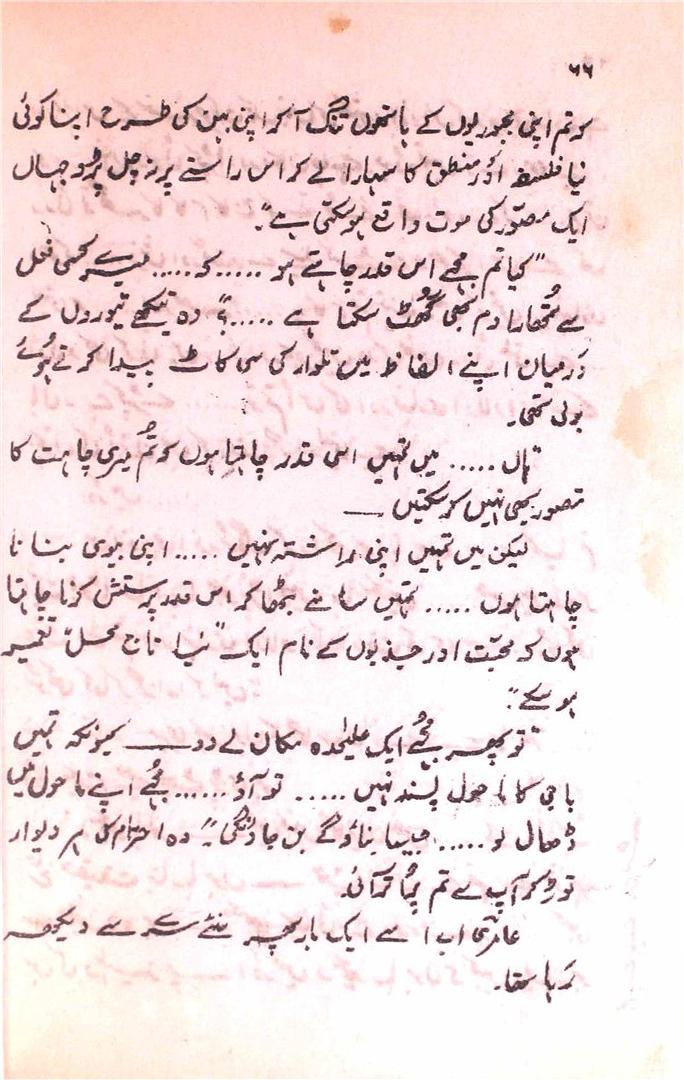 ۶۶
کو تم اپنی مجبوریوں کے ہاتھوں تنگ آ کر اپنی بہن کی طرح اپنا کوئی
نیا فلسفہ اور منطق کا سہارا لے کر اس راستے پر نہ چل پڑو جہاں
ایک مصّور کی موت واقع ہو سکتی ہے"۔
"کیا تم مجھے اس قدر چاہتے ہو ..... کہ ..... میرے کسی فعل
سے تُمھارا دم بھی گُھٹ سکتا ہے .....؟" وہ تیکھے تیوروں کے
دَرمیان اپنے الفاظ میں تلوار کی سی کاٹ پیدا کرتے ہُوئے
بولی تھی۔
"ہاں ..... میں تمہیں اس قدر چاہتا ہوں کہ تُم میری چاہت کا
تصور بھی نہیں کر سکتیں ——
لیکن میں تمہیں اپنی داشتہ نہیں ..... اپنی بیوی بنانا
چاہتا ہوں ..... تمہیں سامنے بٹھا کر اس قدر پرستش کرنا چاہتا
ہوں کہ محبّت اور جذبوں کے نام ایک "نیا تاج محل" تعمیر
ہو سکے"۔
"تو پھر مُجھے ایک علیٰحدہ مکان لے دو —— کیونکہ تمہیں
باجی کا ماحول پسند نہیں ..... تو آؤ ...... مُجھے اپنے ماحول میں
ڈھال لو ..... جیسا بناؤ گے بن جاؤنگی"۔ وہ احترام کی ہر دیوار
توڑ کر آپ سے تم پر اُتر آئی۔
عامر اب اسے ایک بار پھر نئے سرے سے دیکھ
رَہا تھا۔